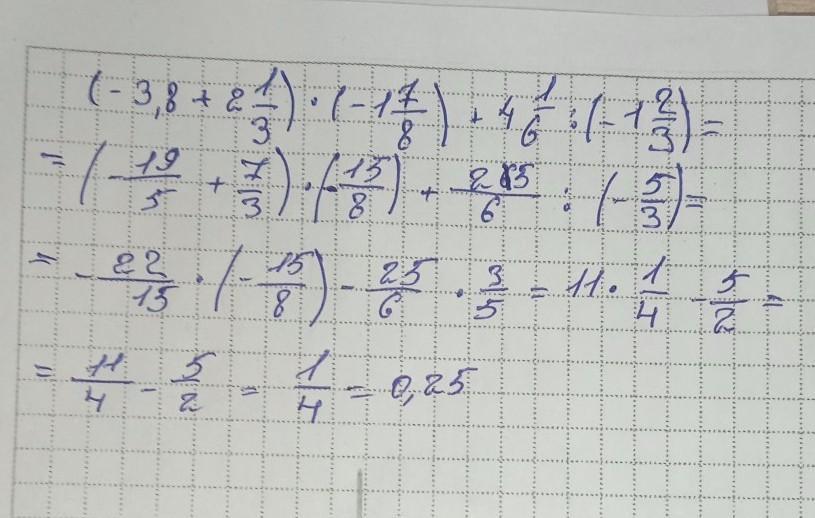 (-3,8 + 2 1/3) · (-1 7/8) + 4 1/6 : (-1 2/3) =
= (-19/5 + 7/3) · (-15/8) + 25/6 : (-5/3) =
= -22/15 · (-15/8) - 25/6 · 3/5 = 11 · 1/4 - 5/2 =
= 11/4 - 5/2 = 1/4 = 0,25